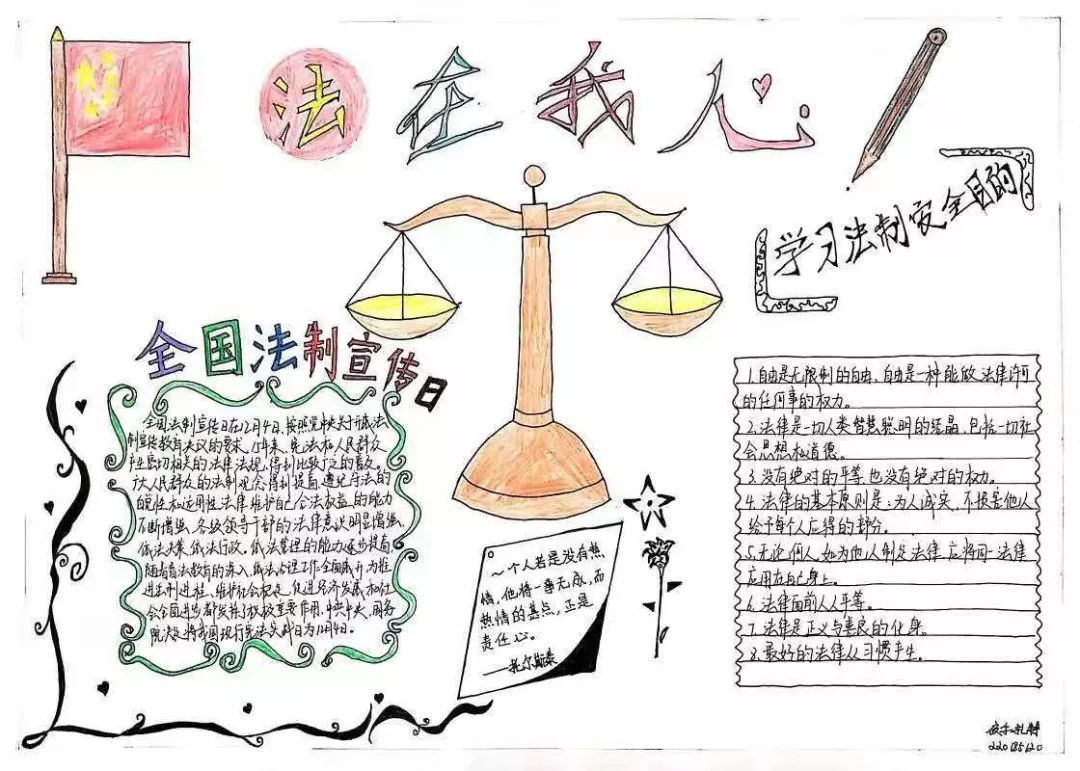 法在我心
学习法制安全目的
全国法制宣传日
全国法制宣传日在12月4日、按照党中央关于开展法
制宣传教育决议的要求、15年来、宪法和人民群众
产业密切相关的法律法规、得到比较广泛的普及。
广大人民群众的法制观念得到提高、遵纪守法的
自觉性和运用法律维护自己合法权益的能力
不断增强、各级领导干部的法律意识明显增强、
依法决策、依法行政、依法管理的能力逐步提高
随着普法教育的深入、依法治理工作全面展开、为推
进法制进程、维护社会稳定、促进经济发展和社
会全面进步都发挥了积极重要作用、中共中央、国务
院决定将我国现行宪法实施日为12月4日。
一个人若是没有热
情、他将一事无成、而
热情的基点、正是
责任心。
——托尔斯泰
1.自由是无限制的自由、自由是一种能做法律许可
的任何事的权力。
2.法律是一切人类智慧聪明的结晶、包括一切社
会思想和道德。
3.没有绝对的平等、也没有绝对的权力。
4.法律的基本原则是：为人诚实、不损害他人
给予每个人应得的部分。
5.无论何人、如为他人制定法律、应将同一法律
应用在自己身上。
6.法律面前人人平等。
7.法律是正义与善良的化身。
8.最好的法律从习惯产生。